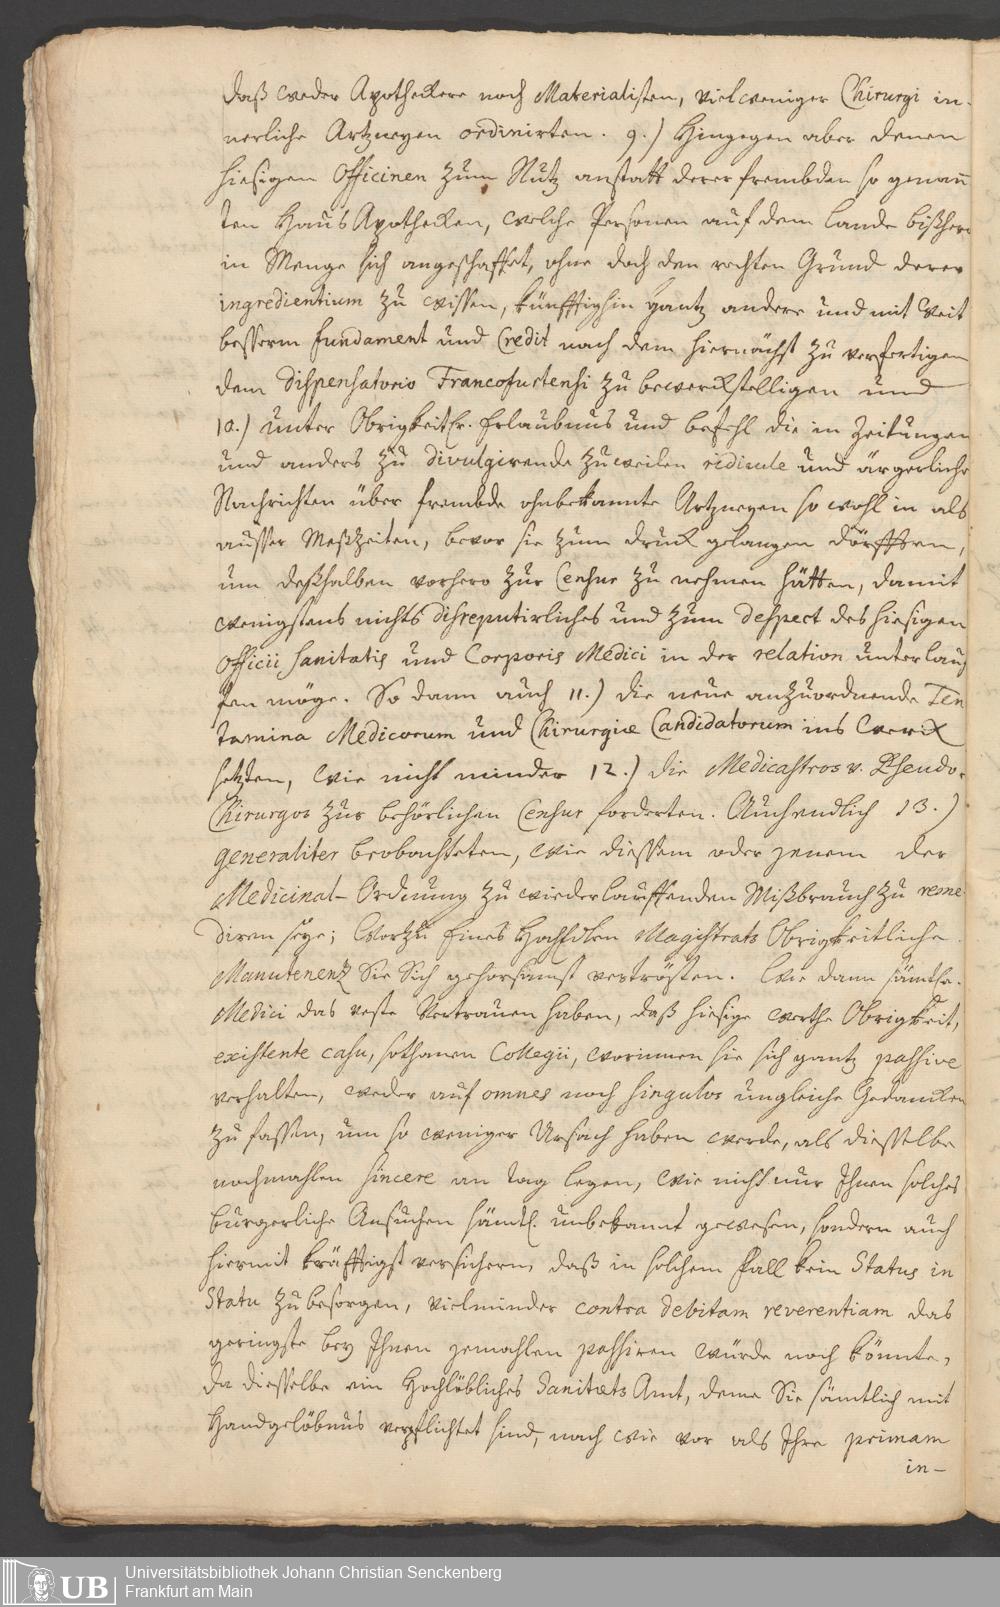 daß weder Apotheckere noch Materialisten, vielweniger Chirurgi in-
nerliche Artzneyen ordinirten. 9.) Hingegen aber denen
hiesigen Officinen zum Nutz anstatt derer frembden so genan̄
ten Haus Apothecken, welche Personen auf dem Lande bißhero
in Menge sich angeschaffet, ohne doch den rechten Grund derer
ingredientium zu wissen, künfftighin gantz andere und mit weit
besserm fundament und Credit nach dem hiernächst zu verfertigen
dem Dispensatorio Francofurtensi zu bewerckstelligen und
10.) unter Obrigkeitlr. Erlaubnus und befehl die in Zeitungen
und anders zu divulgirende zuweilen ridicule und ärgerliche
Nachrichten über frembde ohnbekannte Artzneyen so wohl in als
ausser Meßzeiten, bevor sie zum druck gelangen dörfften,
um deßhalben vorhero zur Censur zu nehmen hätten, damit
wenigstens nichts disreputirliches und zum despect des hiesigen
Officii Sanitatis und Corporis Medici in der relation unterlauf
fen möge. So dann auch 11.) die neue anzuordnende Ten
tamina Medicorum und Chirurgiæ Candidatorum ins Werck
setzten, wie nicht minder 12.) die Medicastros v. Pseudo-
Chirurgos zur behörlichen Censur forderten. Auch endlich 13.)
generaliter beobachteten, wie diessem oder jenem der
Medicinal-Ordnung zu wiederlauffenden Mißbrauch zu reme
diren seye; Worzu Eines Hochedlen Magistrats Obrigkeitliche
Manutenentz Sie Sich gehorsamst vertrösten. Wie dann sämtle.
Medici das veste Vertrauen haben, daß hiesige werthe Obrigkeit,
existente casu, sothanen Collegii, worinnen sie sich gantz passive
verhalten, weder auf omnes noch singulos ungleiche Gedancken
zu fassen, um so weniger Ursach haben werde, als diesselbe
nochmahlen sincere an tag legen, wie nicht nur Ihnen solches
burgerliche Ansuchen sämtl. unbekannt gewesen, sondern auch
hiermit kräfftigst versichern, daß in solchem Fall kein Status in
Statu zu besorgen, vielminder contra debitam reverentiam das
geringste bey Ihnen jemahlen passiren würde noch könnte,
da diesselbe ein Hochlöbliches Sanitæts Amt, deme Sie sämtlich mit
Handgelöbnus verpflichtet sind, nach wie vor als Ihre primam
in-
UB
Universitätsbibliothek Johann Christian Senckenberg
Frankfurt am Main